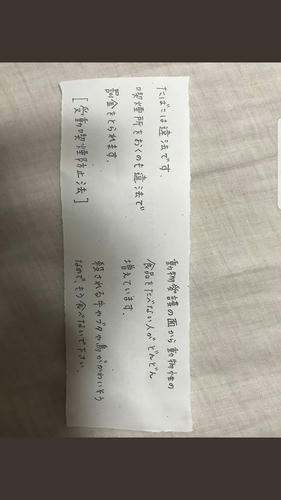 たばこは違法です。
喫煙所をおくのも違法で
罰金をとられます。
[受動喫煙防止法]
動物愛護の面から動物性の
食品をたべない人がどんどん
増えています。
殺される牛やブタや鳥がかわいそう
なので、もう食べないで下さい。